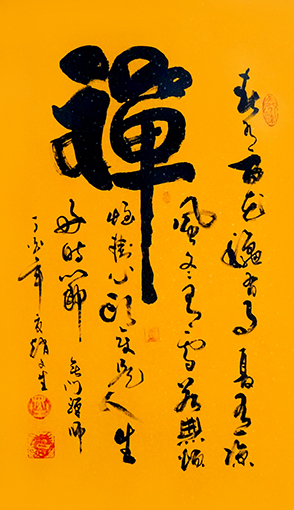 禪
春有百花龝有月夏有凉
風冬有雪若無煩
惱掛心頭便是人生
好時節 無門禪師
丁亥年